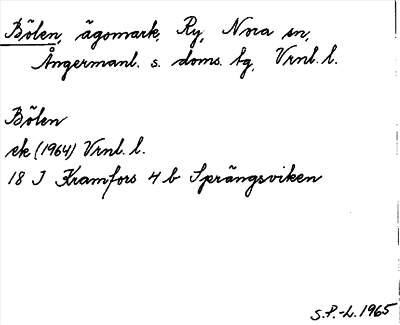 Bölen, ägomark, Ry, Nora sn,
Ångermanl. s. doms. tg, Vrnl. l.
Bölen
ek (1964) Vrnl. l.
18 J Kramfors 4 b Sprängsviken
S.P.-L. 1965